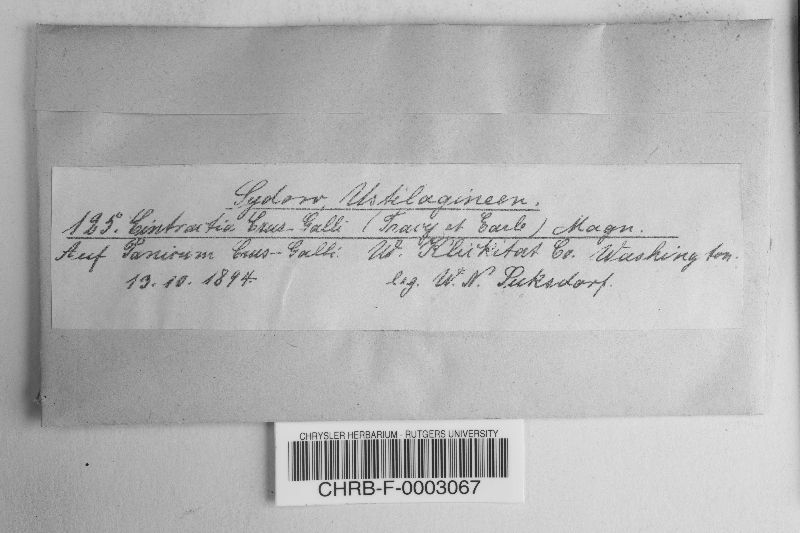 Sydow, Ustilagineen.
125. Cintractia Crus-Galli (Tracy et Earle) Magn.
Auf Panicum Crus-Galli. W. Klickitat Co. Washington.
13. 10. 1894. leg. W. N. Suksdorf.
CHRYSLER HERBARIUM - RUTGERS UNIVERSITY
CHRB-F-0003067